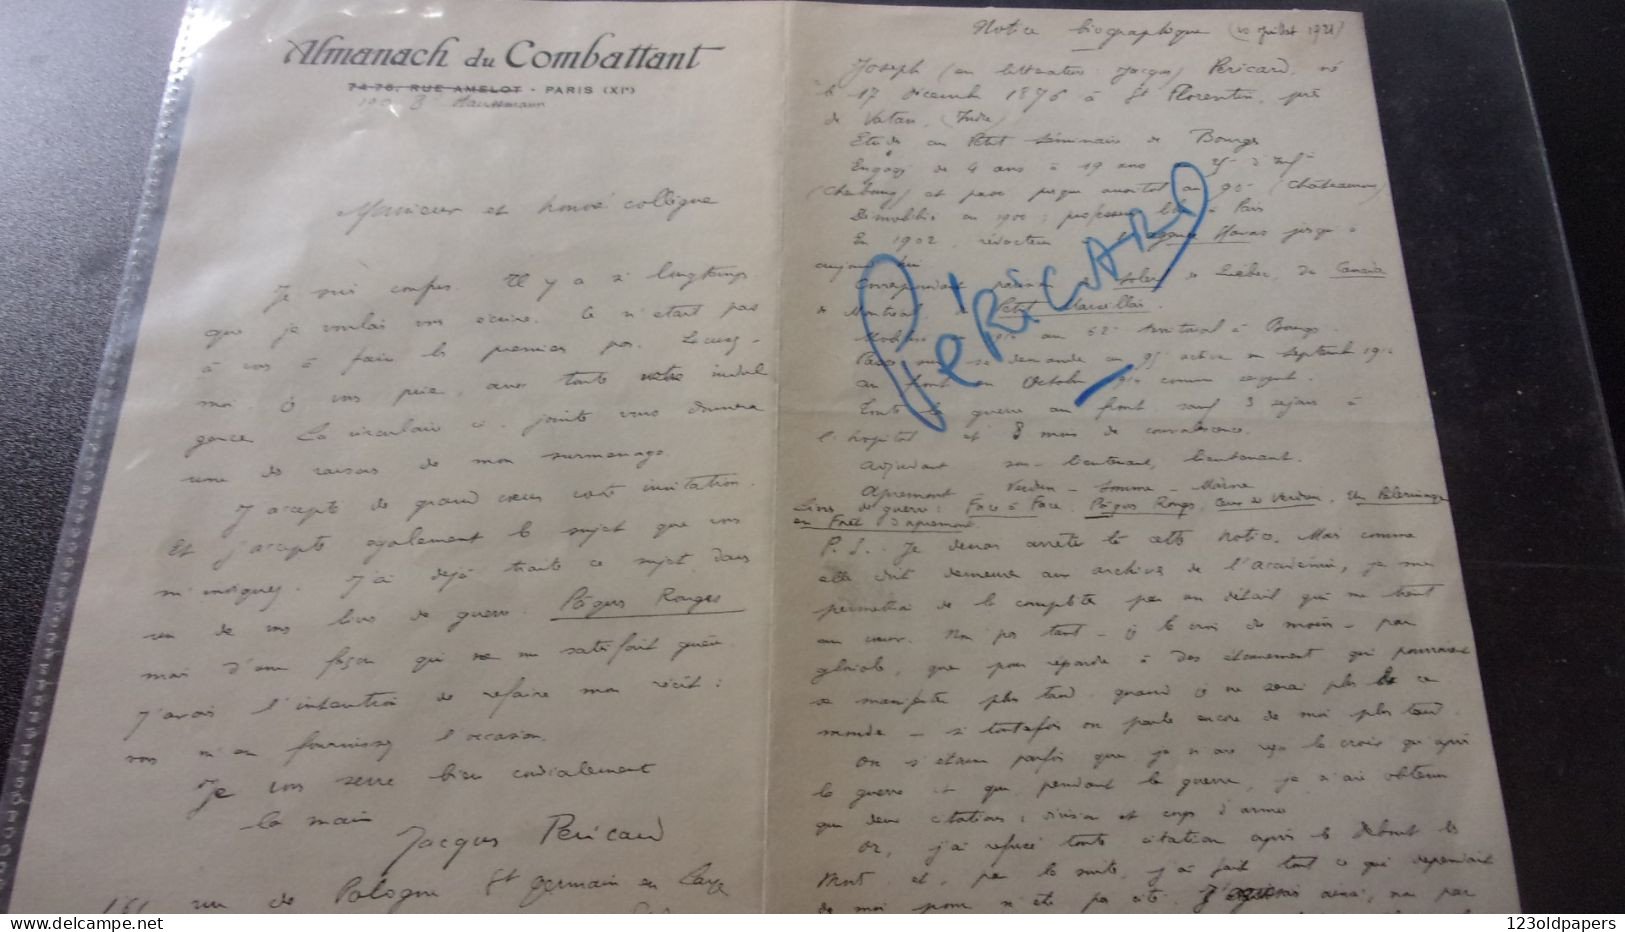 Almanach du Combattant
74-76, RUE AMELOT - PARIS (XIe)
Bd Haussmann
Monsieur et honoré collègue
Je suis confus. Il y a si longtemps
que je voulais vous écrire. Ce n'était pas
à vous à faire les premiers pas. Excusez-
moi, je vous prie, avec toute votre indul
gence. La circulaire ci-jointe vous donnera
une des raisons de mon surmenage.
J'accepte de grand coeur votre invitation.
Et j'accepte également le sujet que vous
m'indiquez. J'ai déjà traité ce sujet dans
un de mes livres de guerre : Pâques Rouges
mais d'une façon qui ne me satisfait guère.
J'avais l'intention de refaire mon récit :
vous m'en fournissez l'occasion.
Je vous serre bien cordialement
la main
Jacques Péricard
161 rue de Pologne St Germain en Laye
Notice biographique (10 juillet
Joseph (en littérature : Jacques) Péricard, né
le 17 décembre 1876 à St Florentin, près
de Vatan, (Indre)
Etudes au Petit Séminaire de Bourges
Engagé de 4 ans à 19 ans
(Cherbourg) et passe presque aussitôt au 90e (Châteauroux)
Démobilisé en 1900 ; professeur à Paris
En 1902, rédacteur à l'agence Havas jusqu'à
aujourd'hui
Correspondant du Soleil de Québec, du Canada
de Montréal, Petit Marseillais.
PÉRICARD
Mobilisé au territorial à Bourges.
Passe sur sa demande au 95e active en septembre 1914
au front en Octobre 1914 comme sergent.
Toute la guerre au front sauf 3 séjours à
l'hôpital et 8 mois de convalescence.
Adjudant, sous-lieutenant, lieutenant.
Apremont - Verdun - Somme - Marne
Livres de guerre : Face à Face, Pâques Rouges, Ceux de Verdun, Un Pèlerinage
en Forêt d'Apremont.
P.S. Je devrais arrêter là cette notice. Mais comme
elle doit demeurer aux archives de l'académie, je me
permettrai de la compléter par un détail qui me tient
au coeur. Non pas tant - je le crois du moins - par
gloriole, que pour répondre à des étonnements qui pourraient
se manifester plus tard quand je ne serai plus de ce
monde - si toutefois on parle encore de moi plus tard.
On s'étonne parfois que je n'aie reçu la croix qu'après
la guerre et que, pendant la guerre, je n'aie obtenu
que deux citations : division et corps d'armée
Or, j'ai refusé toute citation après le Debout les
Morts et, par la suite, j'ai fait tout ce qui dépendait
de moi pour n'être pas cité. J'agissais ainsi, non par
123oldpapers